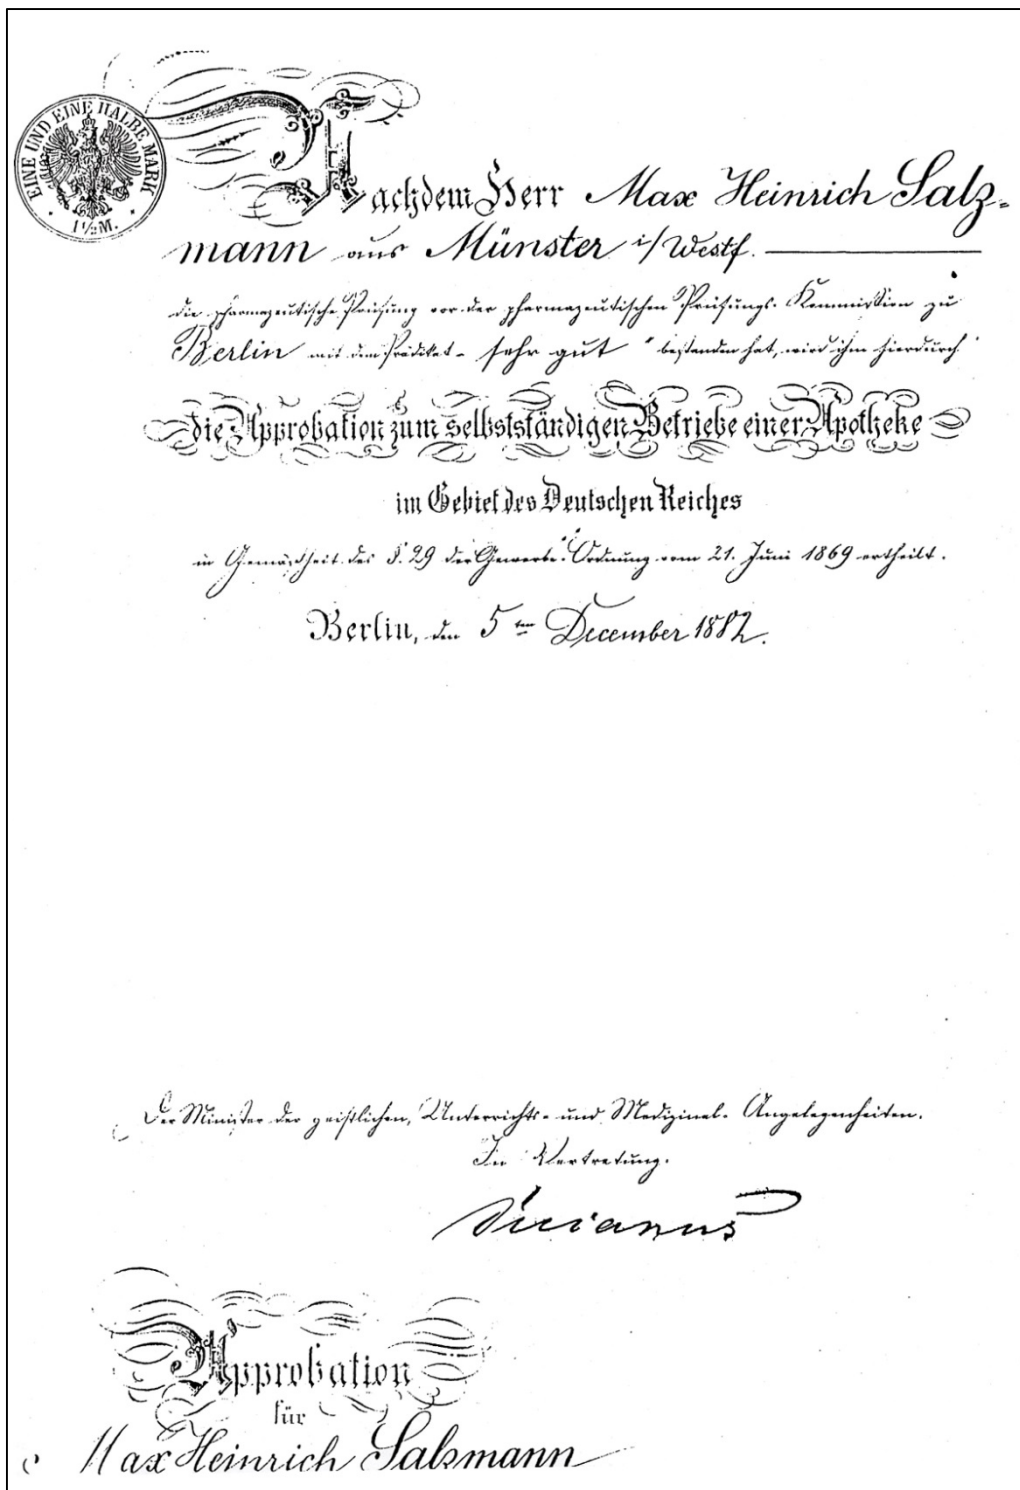 EINE UND EINE HALBE MARK
1 1/2 M.
Nachdem Herr Max Heinrich Salz-
mann aus Münster i/Westf.
die pharmazeutische Prüfung vor der pharmazeutischen Prüfungs-Kommission zu
Berlin mit dem Prädikat „sehr gut“ bestanden hat, wird ihm hierdurch
die Approbation zum selbstständigen Betriebe einer Apotheke
im Gebiet des Deutschen Reiches
in Gemäßheit des §. 29 der Gewerbe-Ordnung vom 21. Juni 1869 ertheilt.
Berlin, den 5ten December 1882.
Der Minister der geistlichen, Unterrichts- und Medizinal-Angelegenheiten.
In Vertretung.
Approbation
für
Max Heinrich Salzmann